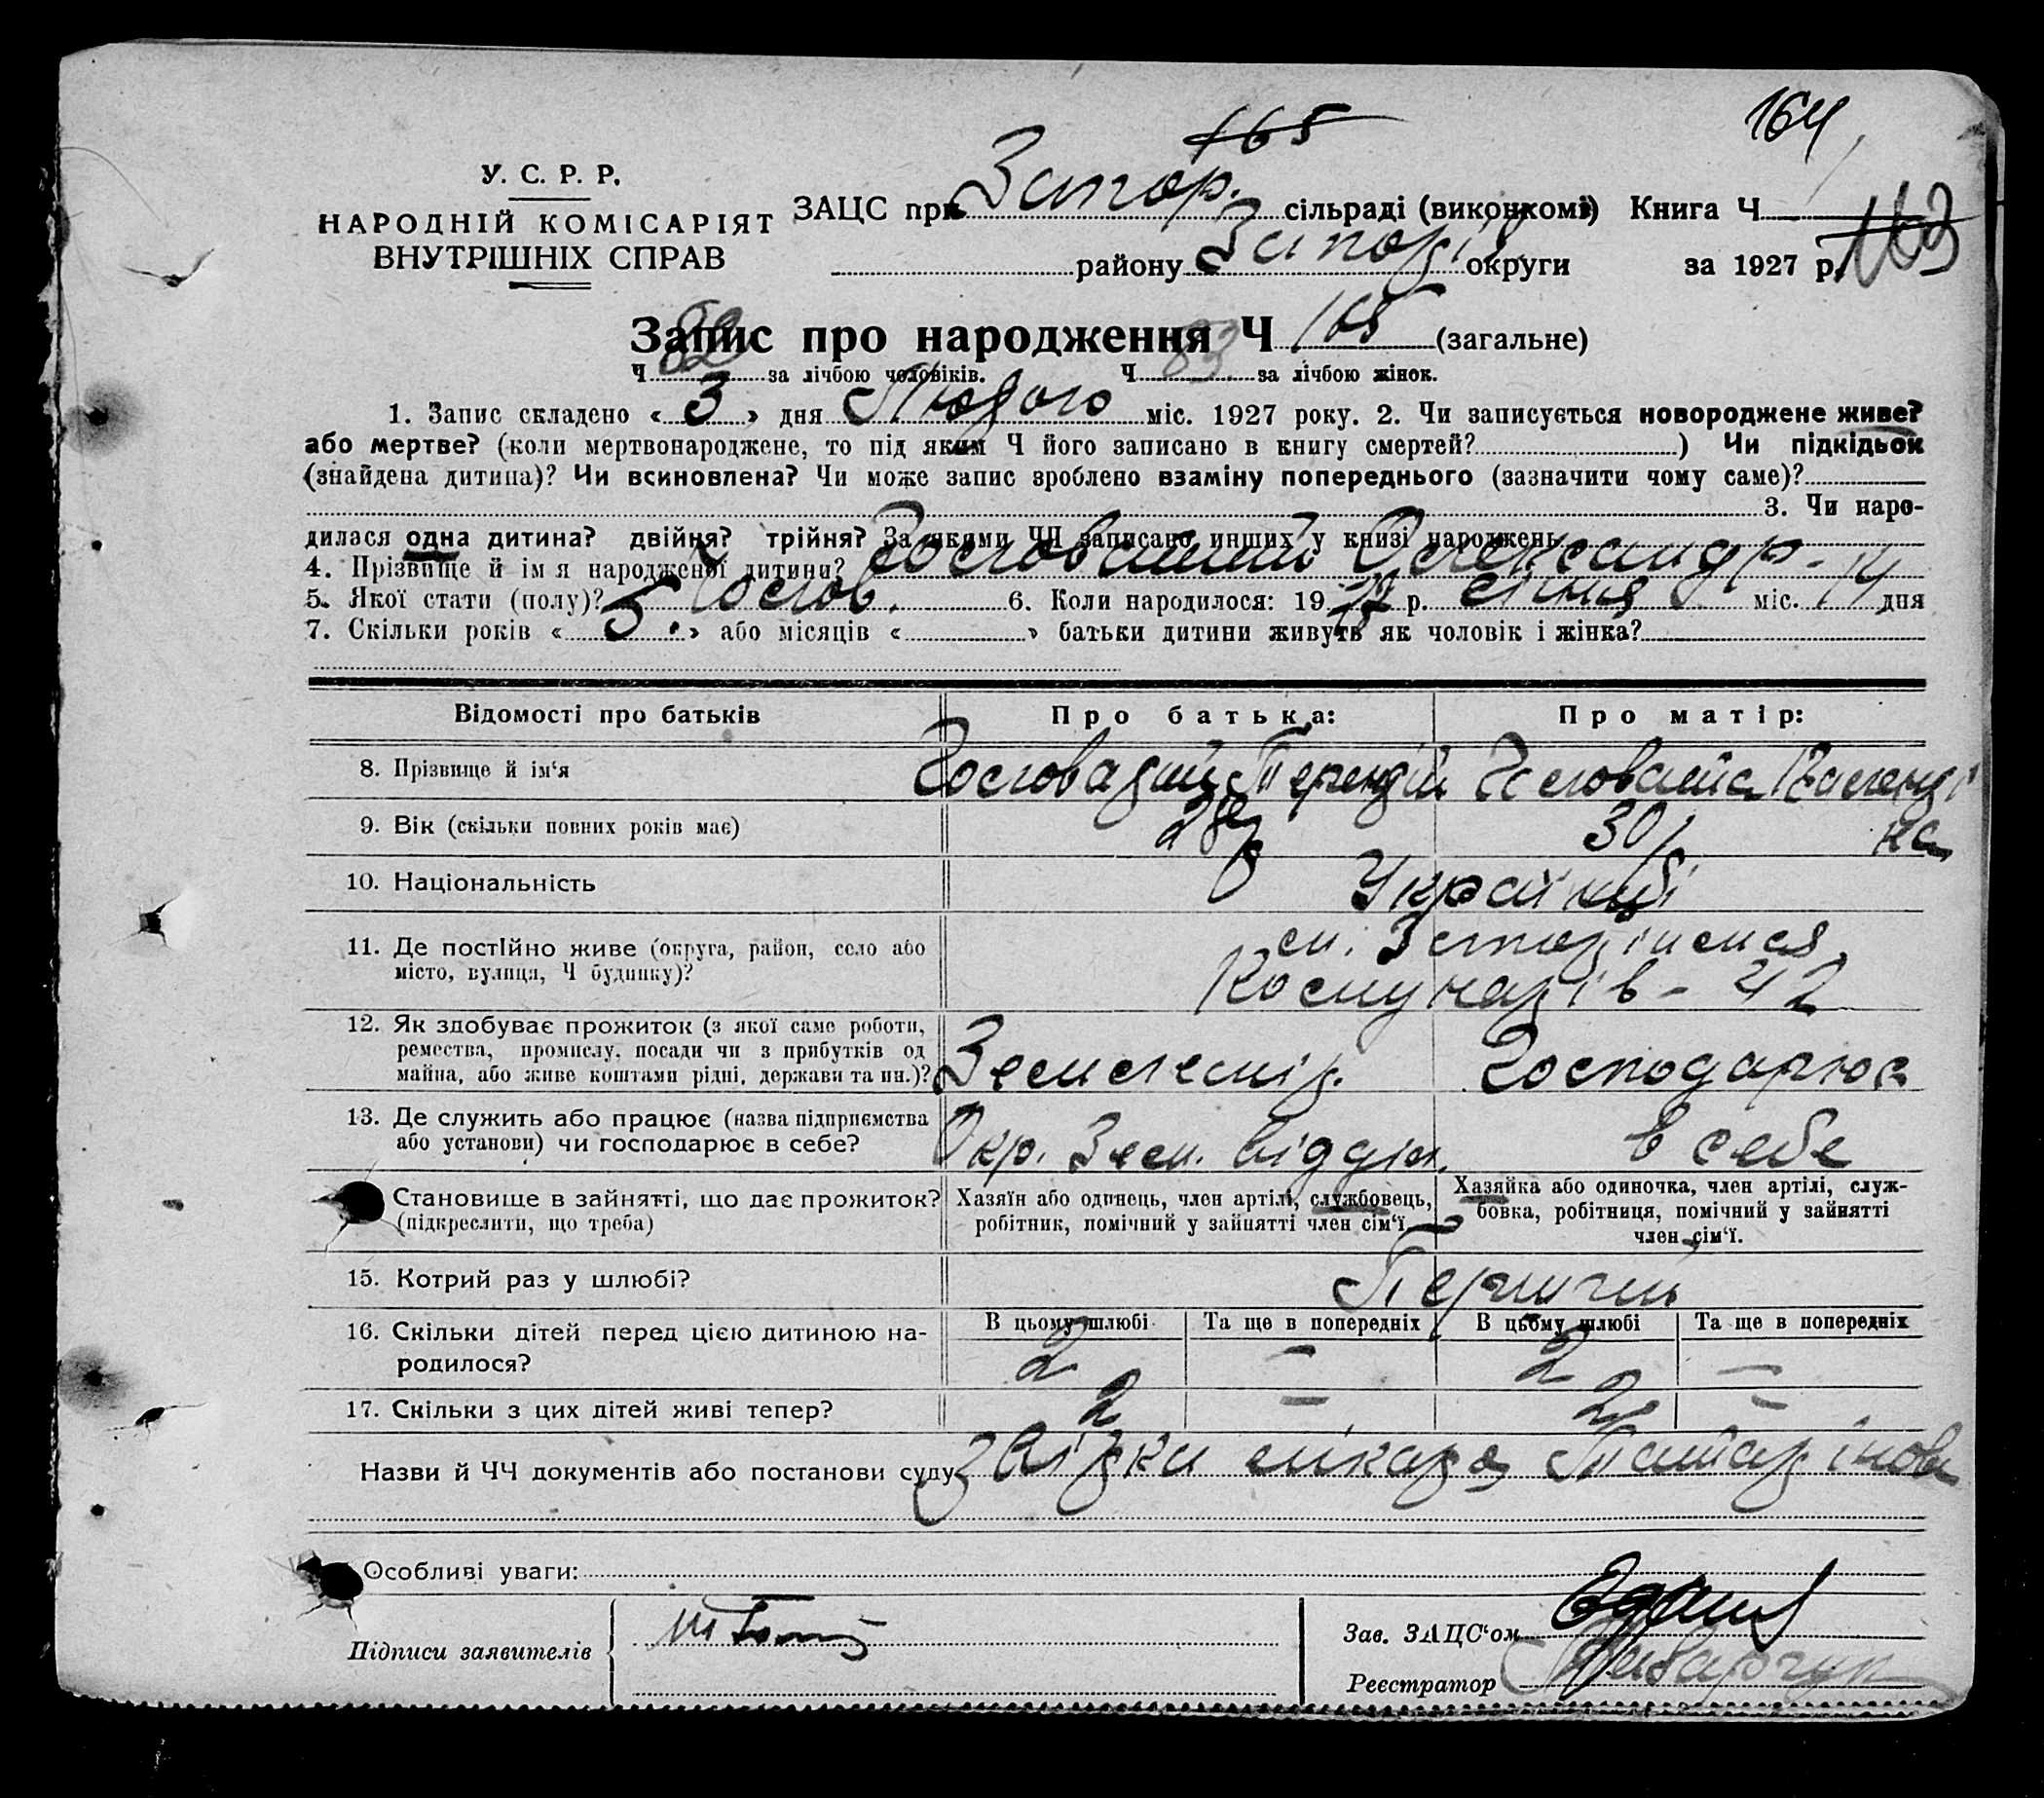 165
164
У. С. Р. Р.
НАРОДНІЙ КОМІСАРІЯТ
ВНУТРІШНІХ СПРАВ
ЗАЦС при Запор. сільраді (виконкомі) Книга Ч.
163
району Запоріз округи за 1927 р.
Запис про народження Ч 165 (загальне)
Ч 82 за лічбою чоловіків. Ч 83 за лічбою жінок.
1. Запис складено « 3 » дня Лютого міс. 1927 року. 2. Чи записується новороджене живе?
або мертве? (коли мертвонароджене, то під яким Ч його записано в книгу смертей? ) Чи підкідьок
(знайдена дитина)? Чи всиновлена? Чи може запис зроблено взаміну попереднього (зазначити чому саме)?
3. Чи наро-
дилася одна дитина? двійня? трійня? За якими ЧЧ записано инших у книзі народжень
4. Прізвище й ім я народженої дитини? Олександр
5. Якої стати (полу)? Чолов. 6. Коли народилося: 19 27 р. січня міс. 14 дня
7. Скільки років « 5. » або місяців « » батьки дитини живуть як чоловік і жінка?
Відомості про батьків Про батька: Про матір:
8. Прізвище й ім‘я
9. Вік (скільки повних років має) 28 30
10. Національність Українці
11. Де постійно живе (округа, район, село або
місто, вулиця, Ч будинку)? Комунарів - 42
12. Як здобуває прожиток (з якої саме роботи,
ремества, промислу, посади чи з прибутків од
майна, або живе коштами рідні, держави та ин.)? Землемір. Господарює
13. Де служить або працює (назва підприємства
або установи) чи господарює в себе? Окр. Зем. Відділ. в себе
Становище в зайнятті, що дає прожиток? Хазяїн або одинець, член артілі, службовець, Хазяйка або одиночка, член артілі, служ-
(підкреслити, що треба) робітник, помічний у зайнятті член сім‘ї. бовка, робітниця, помічний у зайнятті
член сім‘ї.
15. Котрий раз у шлюбі? Перший
16. Скільки дітей перед цією дитиною на- В цьому шлюбі Та ще в попередніх В цьому шлюбі Та ще в попередніх
родилося? 2 – 2 –
17. Скільки з цих дітей живі тепер? 2 – 2 –
Назви й ЧЧ документів або постанови суду звідки лікаря
Особливі уваги:
Підписи заявителів
Зав. ЗАЦС‘ом
Реєстратор